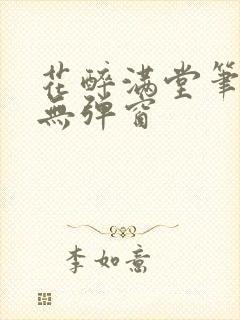 花醉满堂筆
無弹窗
李如意